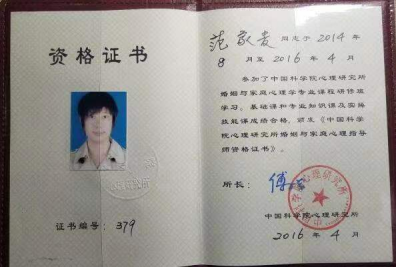 资格证书
证书编号：379
范敬麦 同志于 2014 年
8 月至 2016 年 4 月
参加了中国科学院心理研究所
婚姻与家庭心理学专业课程研修班
学习，基础课和专业知识课及面询
技能课成绩合格，颁发《中国科学
院心理研究所婚姻与家庭心理指导
师资格证书》。
所长：傅
中国科学院心理研究所
2016 年 4 月